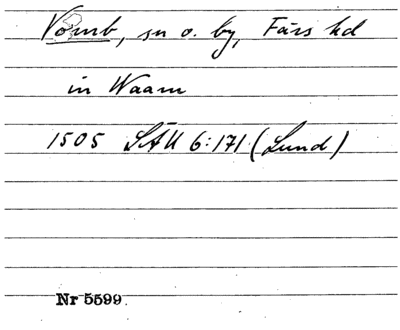 Vomb, sn o. by, Färs hd
in Waam
1505 SÄU 6:171 (Lund)
Nr 5599